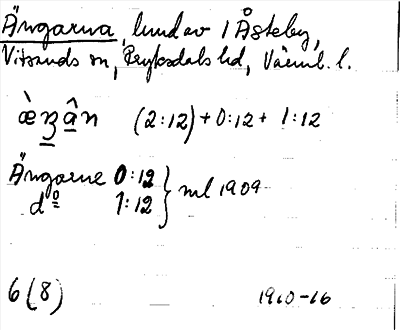 Ängarna, lund av 1 Åsteby,
Vitsands sn, Fryksdals hd, Värml. l.
æ̀ŋân (2:12) + 0:12 + 1:12
Ängarne 0:12 } ml 1909
do 1:12
6(8) 1910-16